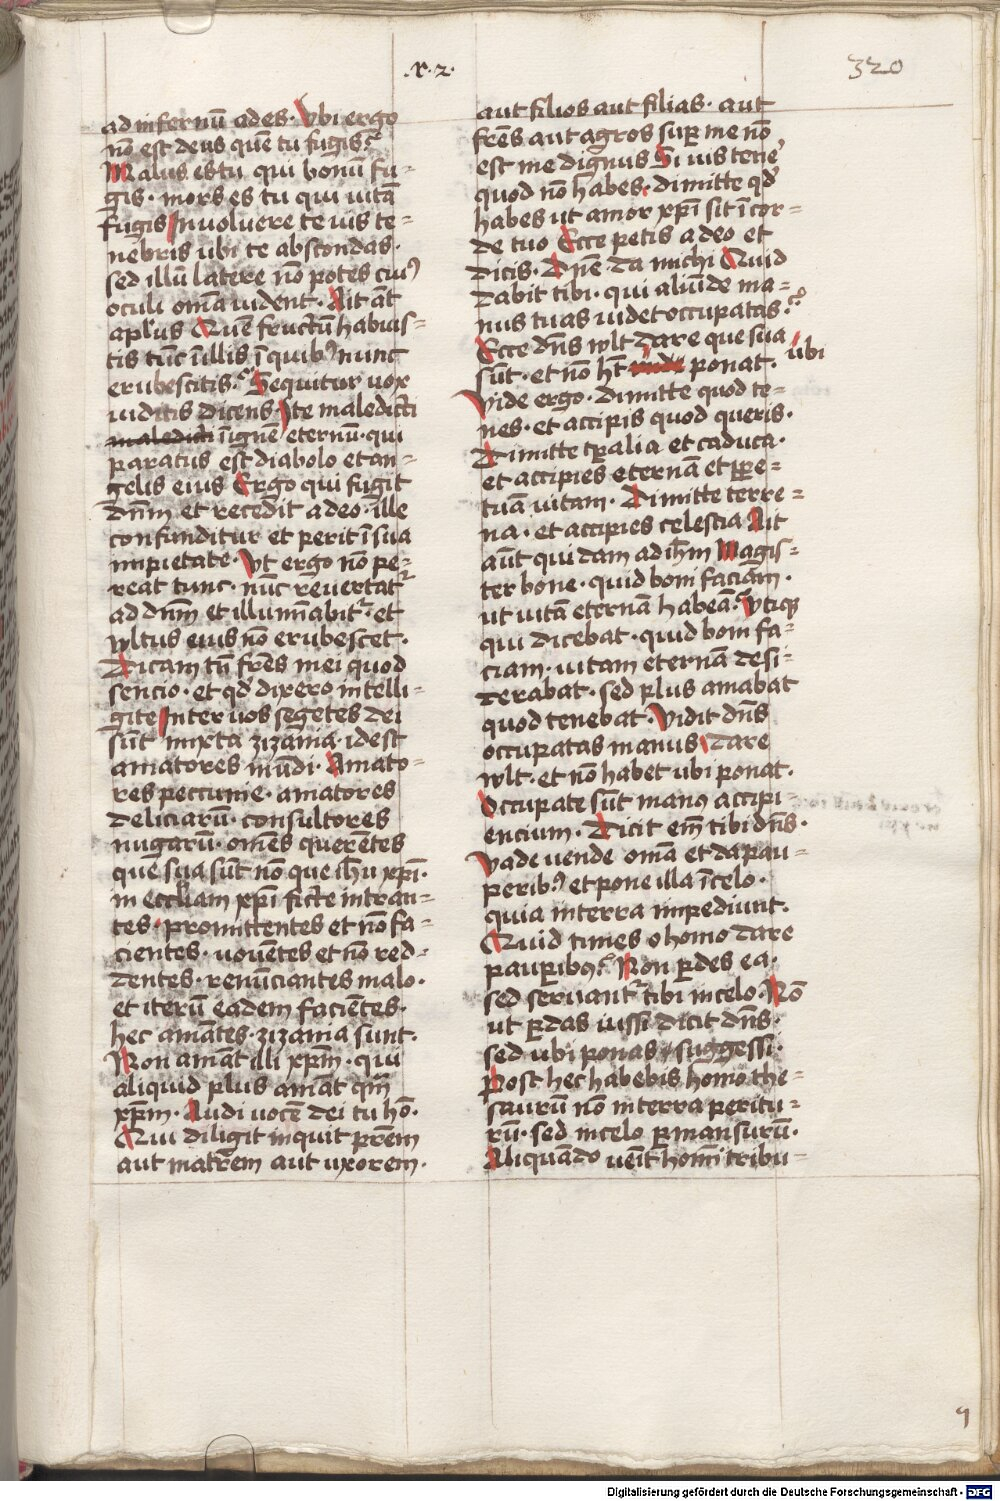 .x.2.
320
ad infernū ades. Vbi ergo
nō est deus quē tu fugis?
Malus es tu qui bonū fu=
gis. mors es tu qui uitā
fugis Inuoluere te uis te=
nebris ubi te abscondas.
sed illū latere nō potes cuiꝰ
oculi om̄a uident. Ait āt
apl'us Quē fructū habuis=
tis tūc ī illis ī quibꝰ nunc
erubescitis? Sequitur uox
iuditis dicens Ite maledicti
maledicti ī ignē eternū. qui
paratus est diabolo et an=
gelis eius Ergo qui fugit
dn̄m et recedit a deo. ille
confunditur et perit ī sua
impietate. Vt ergo nō pe=
reat tunc. nūc reuertat᷑
ad dn̄m et illumīabit᷑. et
wltus eius nō erubescet.
Dicam tn̄ fr̄es mei quod
sencio. et qd' dixero intelli=
gite Inter uos segetes dei
sūt mixta zizania. id est
amatores mūdi. Amato=
res peccunie. amatores
deliciarū. consultores
nugarū. om̄es querētes
que sua sūt non que ih̄u xp̄i.
in eccl'iam xp̄i ficte intran=
tes. promittentes et nō fa=
cientes. uouētes et nō red=
dentes. renūciantes malo.
et iterū eadem faciētes.
hec amātes. zizania sunt.
Non amāt illi xp̄m. qui
aliquid plus amāt qm̄
xp̄m. Audi uocē dei tu hō.
Qui diligit inquit pr̄em
aut matr̄em aut uxorem.
aut filios aut filias. aut
fr̄es aut agros suꝑ me nō
est me dignus Si uis tene'
quod nō habes. dimitte qd'
habes ut amor xp̄i sit ī cor=
de tuo Ecce petis a deo et
dicis. Dn̄e da michi Quid
dabit tibi. qui aliūde ma=
nus tuas uidet occupatas?
Ecce dn̄s wlt dare que sua
sūt. et nō h̄t ponat. ubi
Vide ergo. dimitte quod te=
nes. et accipis quod queris.
Dimitte tꝑalia et caduca.
et accipies eternā et ꝑpe=
tuā uitam. Dimitte terre=
na. et accipies celestia Ait
aūt quidam ad ih̄m Magis=
ter bone. quid boni faciām.
ut uitā eternā habeā? Vtiqꝫ
qui dicebat. quid boni fa=
ciam. uitam eternā desi=
derabat. sed plus amabat
quod tenebat. Vidit dn̄s
occupatas manus Dare
wlt. et nō habet ubi ponat.
Occupate sūt manꝰ accipi=
encium. Dicit em̄ tibi dn̄s.
Vade uende om̄a et da pau=
peribꝰ et pone illa ī celo.
quia in terra impediunt.
Quid times o homo dare
pauꝑibꝰ? Non ꝑdes ea.
sed seruant᷑ tibi in celo. Nō
ut ꝑdas iussi dicit dn̄s.
sed ubi ponas suggessi.
Post hec habebis homo the=
saurū nō in terra peritu=
rū. sed in celo ꝑmansurū.
Aliquando uēit homī tribu=
9
Digitalisierung gefördert durch die Deutsche Forschungsgemeinschaft · DFG